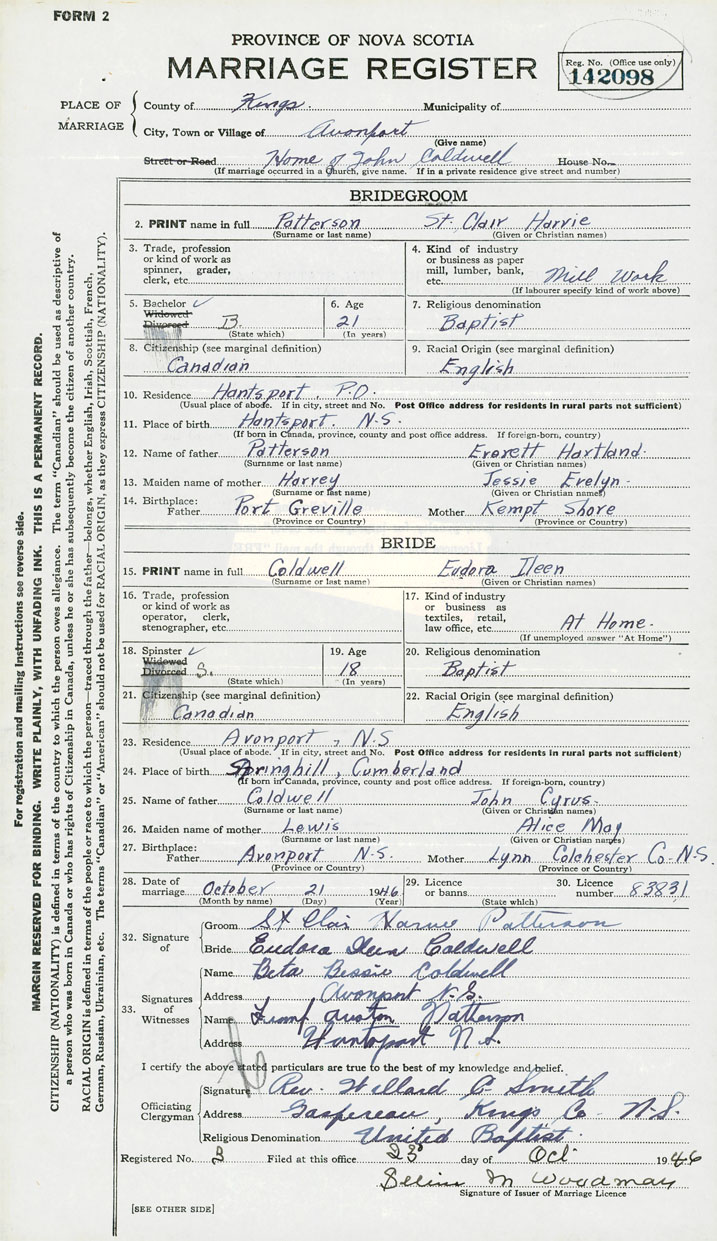 FORM 2
PROVINCE OF NOVA SCOTIA
MARRIAGE REGISTER
Reg. No. (Office use only)
142098
PLACE OF MARRIAGE
County of Kings. Municipality of
City, Town or Village of Avonport
(Give name)
Street or Road Home of John Coldwell House No.
(If marriage occurred in a Church, give name. If in a private residence give street and number)
BRIDEGROOM
2. PRINT name in full Patterson St. Clair Harvie
(Surname or last name) (Given or Christian names)
3. Trade, profession or kind of work as spinner, grader, clerk, etc.
4. Kind of industry or business as paper mill, lumber, bank, etc. Mill Work
(If labourer specify kind of work above)
5. Bachelor ✓ Widowed Divorced B.
(State which)
6. Age 21
(In years)
7. Religious denomination
Baptist
8. Citizenship (see marginal definition)
Canadian
9. Racial Origin (see marginal definition)
English
10. Residence Hantsport, P.O.
(Usual place of abode. If in city, street and No. Post Office address for residents in rural parts not sufficient)
11. Place of birth Hantsport. N.S.
(If born in Canada, province, county and post office address. If foreign-born, country)
12. Name of father Patterson Everett Hartland.
(Surname or last name) (Given or Christian names)
13. Maiden name of mother Harvey Jessie Evelyn
(Surname or last name) (Given or Christian names)
14. Birthplace: Father Port Greville Mother Kempt Shore
(Province or Country) (Province or Country)
BRIDE
15. PRINT name in full Coldwell Eudora Ileen
(Surname or last name) (Given or Christian names)
16. Trade, profession or kind of work as operator, clerk, stenographer, etc.
17. Kind of industry or business as textiles, retail, law office, etc. At Home.
(If unemployed answer "At Home")
18. Spinster ✓ Widowed Divorced S.
(State which)
19. Age 18
(In years)
20. Religious denomination
Baptist
21. Citizenship (see marginal definition)
Canadian
22. Racial Origin (see marginal definition)
English
23. Residence Avonport, N.S
(Usual place of abode. If in city, street and No. Post Office address for residents in rural parts not sufficient)
24. Place of birth Springhill, Cumberland
(If born in Canada, province, county and post office address. If foreign-born, country)
25. Name of father Coldwell John Cyrus.
(Surname or last name) (Given or Christian names)
26. Maiden name of mother Lewis Alice May
(Surname or last name) (Given or Christian names)
27. Birthplace: Father Avonport N.S. Mother Lynn Colchester Co. N.S.
(Province or Country) (Province or Country)
28. Date of marriage October 21 1946
(Month by name) (Day) (Year)
29. Licence or banns
(State which)
30. Licence number 83831
32. Signature of
Groom St Clair Harvie Patterson
Bride Eudora Ileen Coldwell
33. Signatures of Witnesses
Name Beta Bessie Coldwell
Address Avonport N.S.
Name Auston Patterson
Address Hantsport N.S.
I certify the above stated particulars are true to the best of my knowledge and belief.
Officiating Clergyman
Signature Rev. Willard C Smith
Address Gaspereau, Kings Co N.S.
Religious Denomination United Baptist
Registered No. 3 Filed at this office 23 day of Oct 1946
M Woodman
Signature of Issuer of Marriage Licence
[SEE OTHER SIDE]
For registration and mailing Instructions see reverse side.
MARGIN RESERVED FOR BINDING. WRITE PLAINLY, WITH UNFADING INK. THIS IS A PERMANENT RECORD.
CITIZENSHIP (NATIONALITY) is defined in terms of the country to which the person owes allegiance. The term "Canadian" should be used as descriptive of
a person who was born in Canada or who has rights of Citizenship in Canada, unless he or she has subsequently become the citizen of another country.
RACIAL ORIGIN is defined in terms of the people or race to which the person—traced through the father—belongs, whether English, Irish, Scottish, French,
German, Russian, Ukrainian, etc. The terms "Canadian" or "American" should not be used for RACIAL ORIGIN, as they express CITIZENSHIP (NATIONALITY).